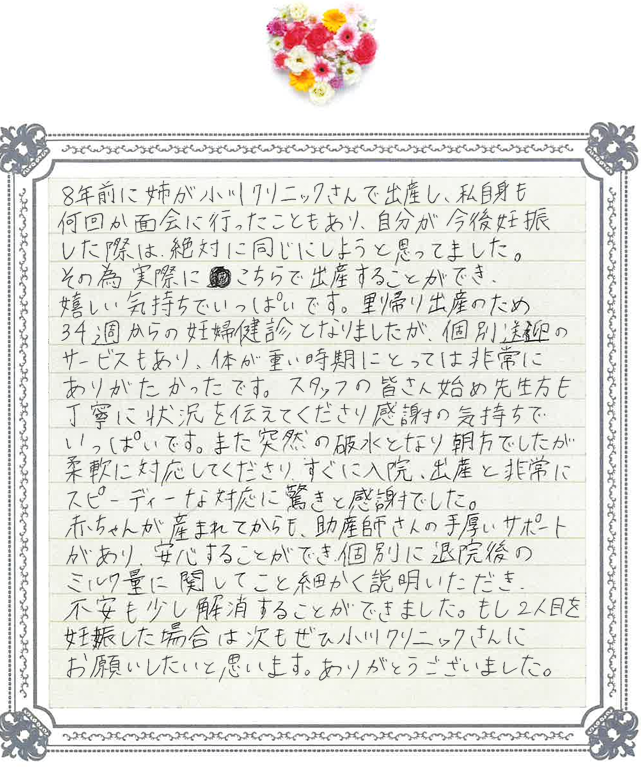 8年前に姉が小川クリニックさんで出産し、私自身も
何回か面会に行ったこともあり、自分が今後妊振
した際は、絶対に同じにしようと思ってました。
その為実際にこちらで出産することができ、
嬉しい気持ちでいっぱいです。里帰り出産のため
34週からの妊婦健診となりましたが、個別送迎の
サービスもあり、体が重い時期にとっては非常に
ありがたかったです。スタッフの皆さん始め先生方も
丁寧に状況を伝えてくださり感謝の気持ちで
いっぱいです。また突然の破水となり朝方でしたが
柔軟に対応してくださりすぐに入院、出産と非常に
スピーディーな対応に驚きと感謝でした。
赤ちゃんが産まれてからも、助産師さんの手厚いサポート
があり、安心することができ個別に退院後の
ミルク量に関してこと細かく説明いただき、
不安も少し解消することができました。もし2人目を
妊振した場合は次もぜひ小川クリニックさんに
お願いしたいと思います。ありがとうございました。